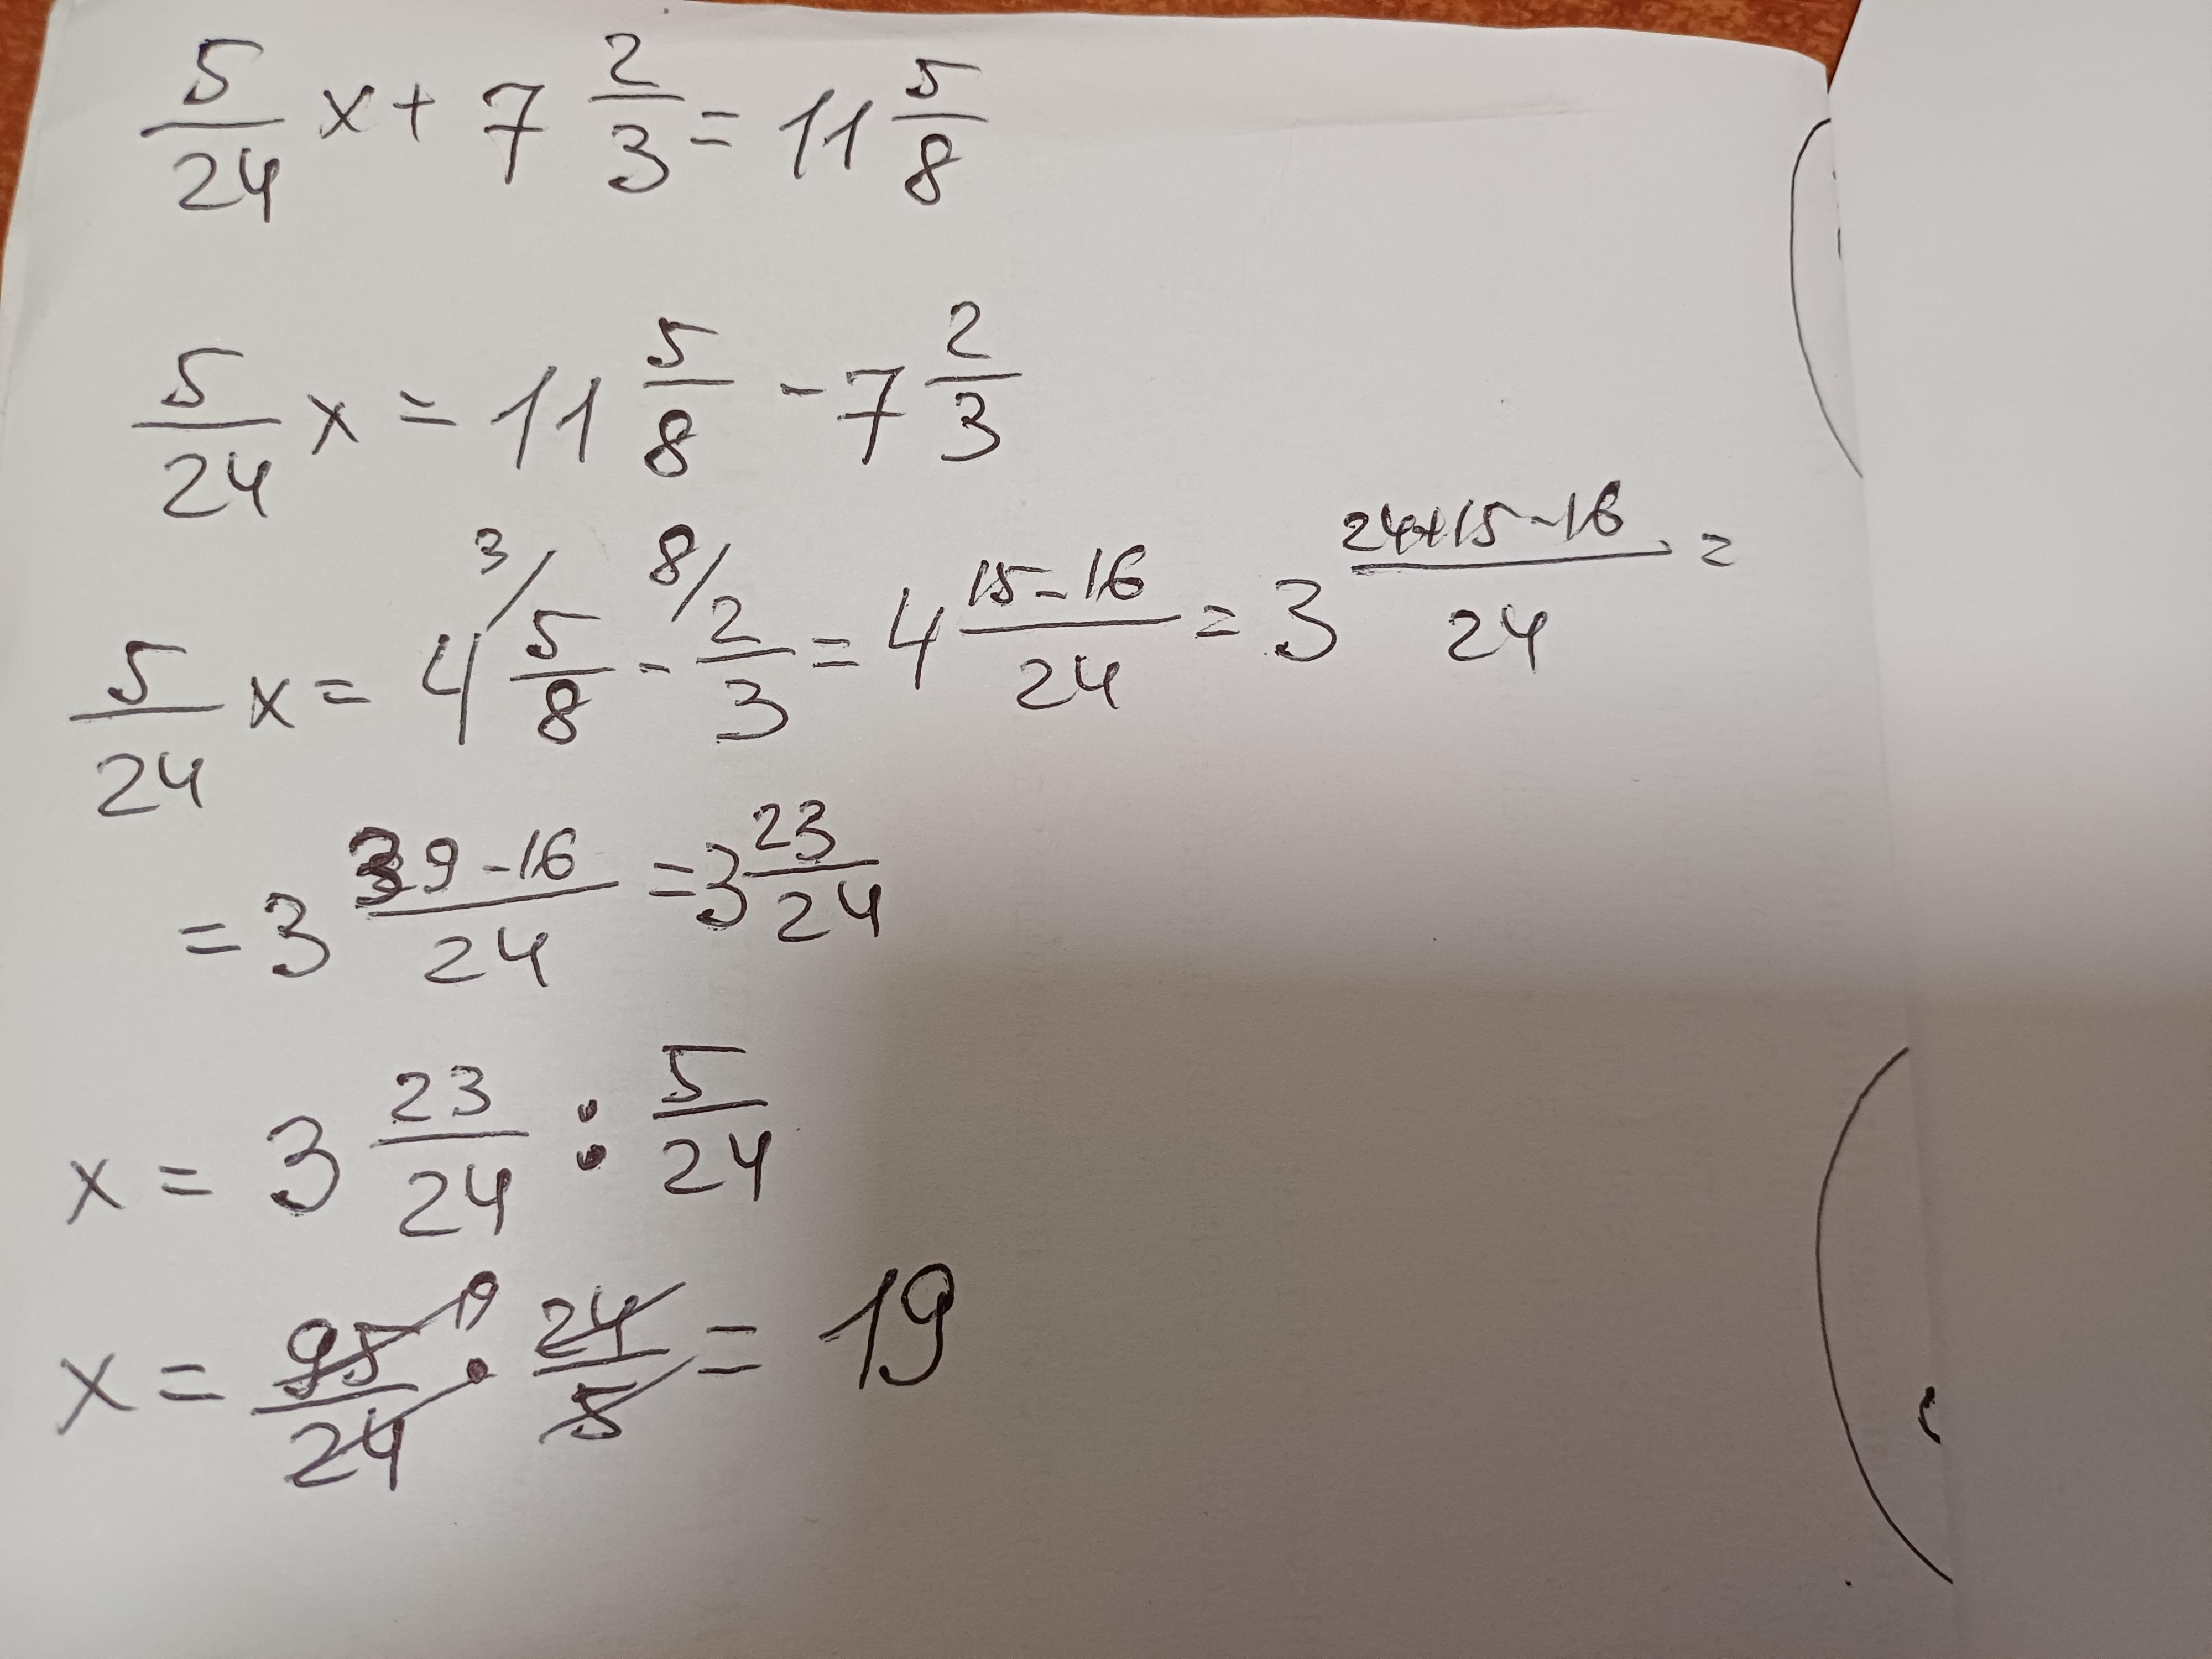 5/24 x + 7 2/3 = 11 5/8
5/24 x = 11 5/8 - 7 2/3
5/24 x = 4 3/ 5/8 - 8/ 2/3 = 4 (15-16)/24 = 3 (24+15-16)/24 =
= 3 (39-16)/24 = 3 23/24
x = 3 23/24 : 5/24
x = 95/24 19 · 24/5 = 19